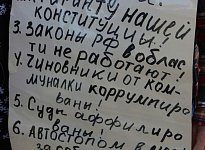 Гаранту нашей
конституции.
3. Законы РФ в облас
ти не работают!
4. Чиновники от ком
муналки коррумпиро
ваны!
5. Суды афилиро
ваны!
6. Автостопом в